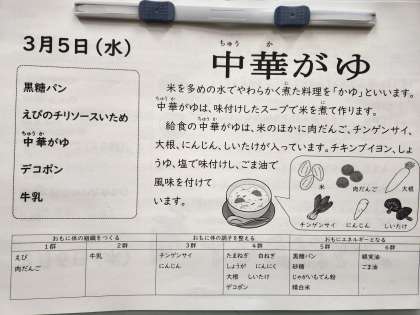 3月5日(水)
黒糖パン
えびのチリソースいため
ちゅうか
中華がゆ
デコポン
牛乳
ちゅう か
中華がゆ
米を多めの水でやわらかく煮た料理を「かゆ」といいます。
ちゅうか
中華がゆは、味付けしたスープで米を煮て作ります。
ちゅうか
給食の中華がゆは、米のほかに肉だんご、チンゲンサイ、
大根、にんじん、しいたけが入っています。チキンブイヨン、しょ
うゆ、塩で味付けし、ごま油で
風味を付けて
います。
米
肉だんご
大根
チンゲンサイ
にんじん
しいたけ
おもに体の組織をつくる
おもに体の調子を整える
おもにエネルギーとなる
1群 2群 3群 4群 5群 6群
えび 牛乳 チンゲンサイ たまねぎ 白ねぎ 黒糖パン 綿実油
肉だんご にんじん しょうが にんにく 砂糖 ごま油
大根 しいたけ じゃがいもでん粉
デコポン 精白米